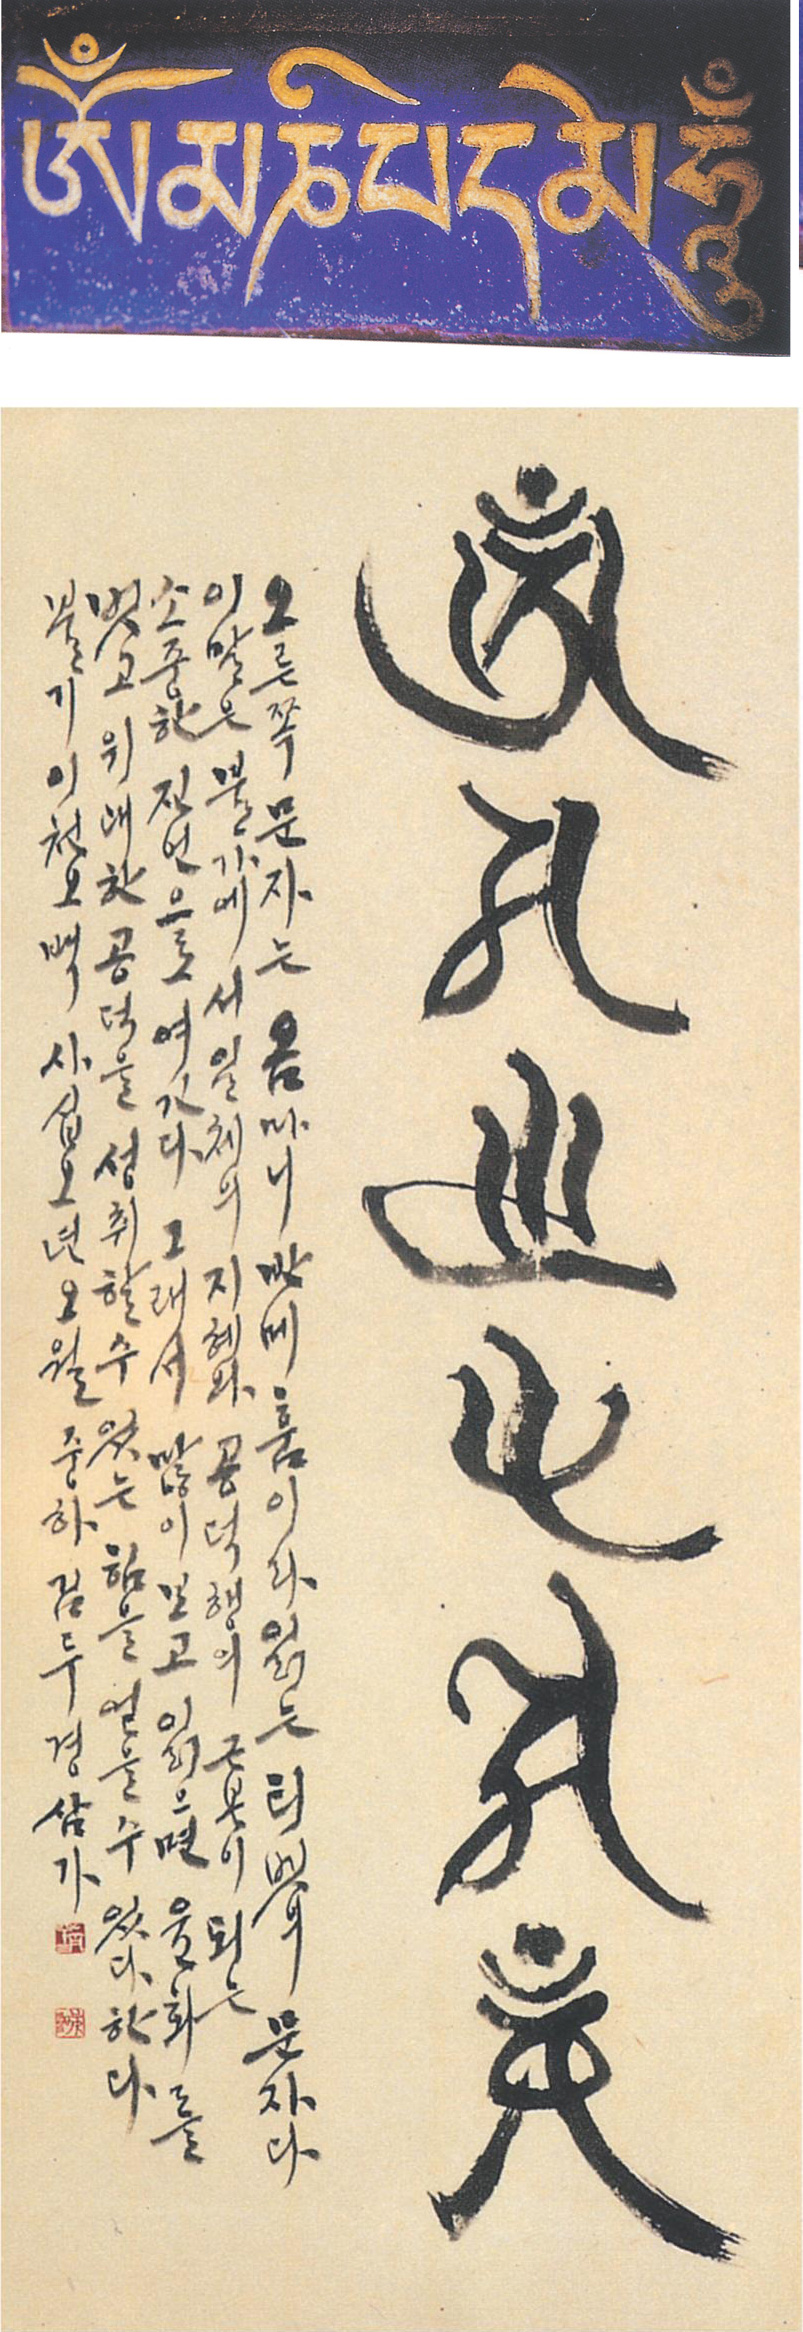 ཨོཾམཎིཔདམེཧཱུྃ
오른쪽 문자는 옴마니 반메 훔이라 읽는 티벳의 문자다
이 말은 불가에서 일체의 지혜와 공덕행의 근본이 되는
소중한 진언으로 여긴다 그래서 많이 보고 읽으면 윤회를
벗고 위대한 공덕을 성취할 수 있는 힘을 얻을 수 있다 한다
불기 이천오백 사십오년 오월 중하 김두경 삼가